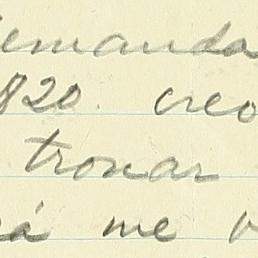 demanda
820. creo
tronar
rá me v